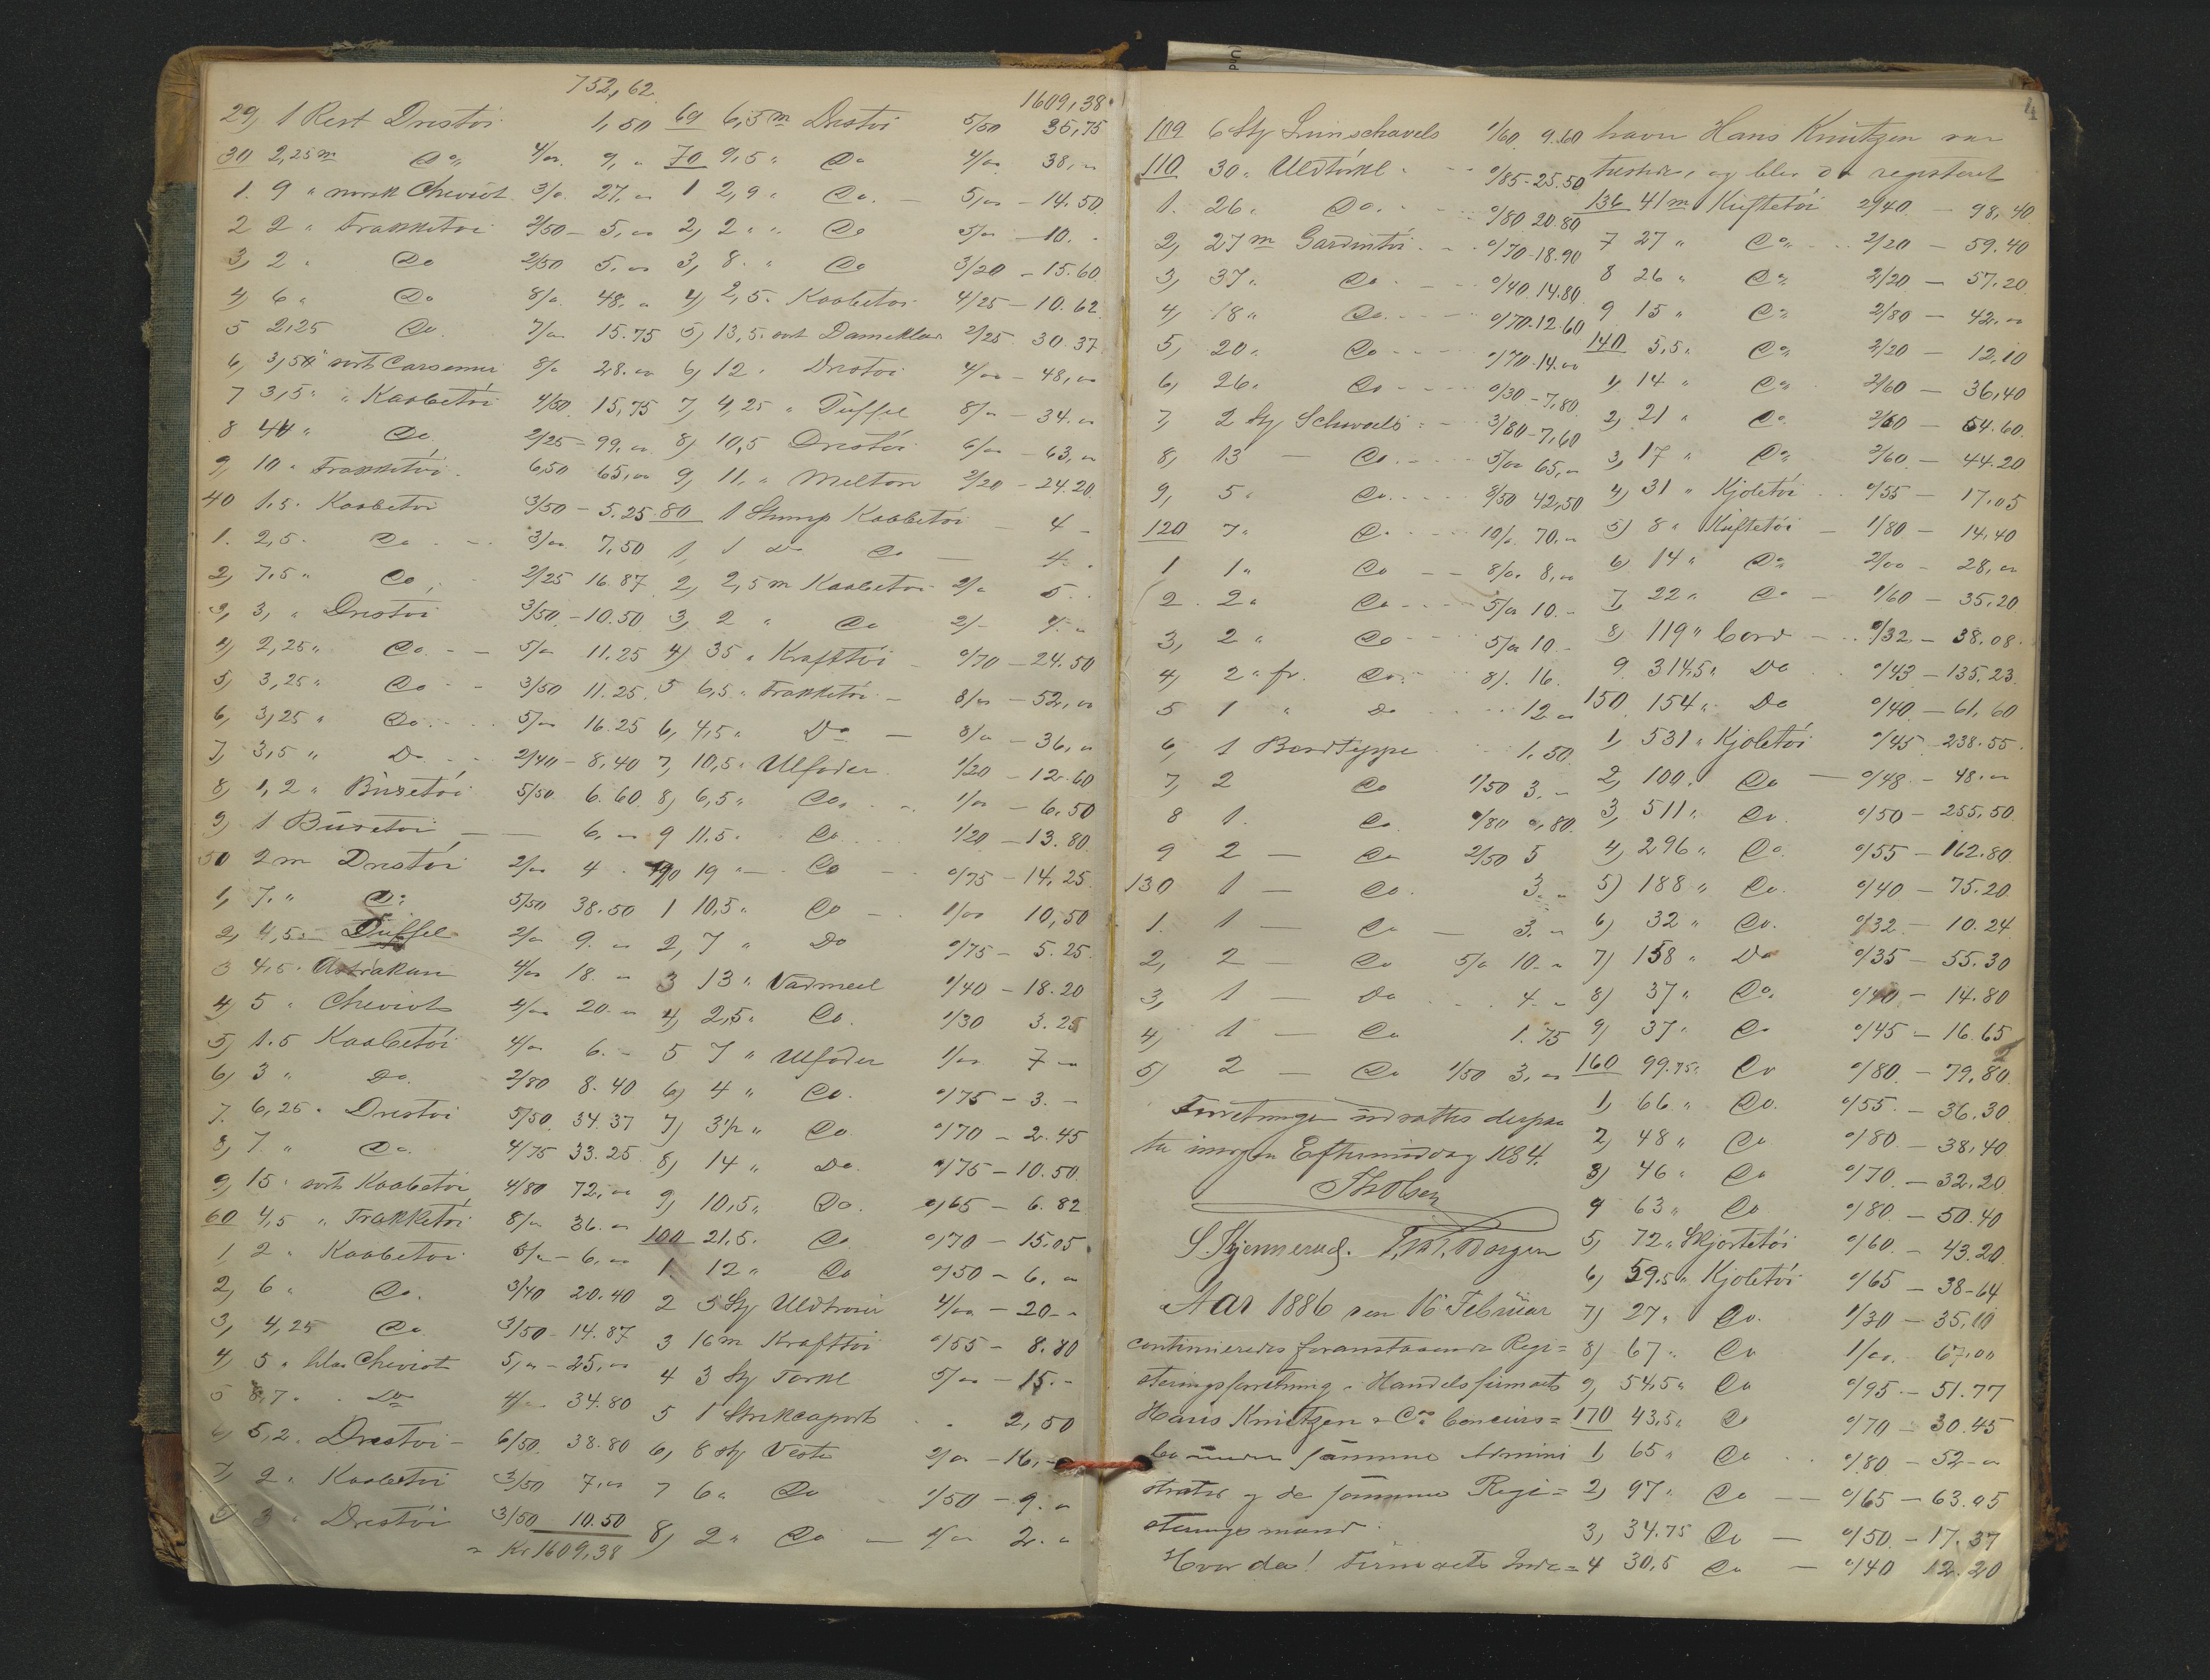 752,62
29, 1 Rest Drestöi 1,50
30 2,25 m Do 4/00 9, "
1. 9 " norsk Cheviot 3/0 27, 00
2 2 " Frakketöi 2/50 - 5, 00
3, 2 " Do 2/50 5. 00
4, 6 " Do 8/0 48, 0
5 2,25 Do. 7/00 15.75
6, 3,5 " sort 8/0 28. 00
7 3,5 " " Kaabetöi 4/50 15,75
8 44 " Do 2/25 - 99, 00
9, 10 " Frakketöi. 6,50 65,00
40 1,5. Kaabetöi 3/50 - 5.25
1. 2,5. Do 3/00 7,50
2, 7,5 " Do 2/25 16.87
3, 3, " Drestöi 3/50 - 10.50
4, 2,25 " Do. 5/00 11.25
5, 3,25 " Do 3/50 11.25
6, 3,25 " Do. 5/00 16.25
7, 3,5 " Do 2/40 - 8,40
8, 1,2 " Büxetöi 5/50 6.60
9, 1 Büxetöi 6, 00
50 2 m Drestöi 2/00 4
1, 7. " Do 5/50 38.50
2, 4,5 - Düffel 2/00 9. 00
3 4,5. Astrakan 4/00 18. 00
4, 5 " Cheviot 4/00 20. 00
5, 1.5 Kaabetöi 4/00 6. -
6, 3 " Do. 2/80 8.40
7. 6,25 " Drestöi 5/50. 34.37
8, 7 " Do. 4/75 33.25
9, 15 " sort Kaabetöi 4/80 72, 00
60 4,5 " Frakketöi 8/00 36. 00
1, 2 " Kaabetöi 3/00 - 6, 00
2, 6 " Do. 3/40 20.40
3, 4,25 Do 3/50 - 14.87
4, 5 " blaa Cheviot 5,00 - 25,00
5 8,7 " Do 4/00 34.80
6, 5,2. Drestöi - 6/50. 38.80
7, 2 " Kaabetöi 3/50 7,00
8, 3 " Drestöi 3/50 10.50
= Kr 1609,38
1609,38.
69 6,5 m Drestöi 5/50 35,75
70 9,5 " Do 4/00 38, 00
1 2,9 " Do. 5/00 - 14.50
2, 2 " " Do 5/00 - 10. -
3, 8. " Do 3/20 - 15.60
4, 2,5. Kaabetöi 4/25 - 10.62
5, 13,5. sort Dameklæde 2/25 30.37
6, 12 " Drestöi 4/00 - 48,00
7, 4,25 " Düffel 8/00 - 34. 00
8, 10,5 Drestöi 6/00 - 63, 00
9, 11, " Melton 2/20 - 24.20
80 1 Stump Kaabetöi - 4 -
1, 1 do Do - 4. -
2, 2,5 m Kaabetöi 2/0 5. .
3, 2 " Do 2/- 4. 00
4, 35 " Krafttöi 0/70 - 24.50
5 6,5 " Frakketöi - 8/00 - 52, 00
6, 4,5 " Do - 8/00 - 36, 00
7, 10,5 " Ulfoder 1/20 - 12.60
8, 6,5 " Do, 1/00 - 6,50
9 11,5 " Do 1/20 - 13.80
90 19 " - Do 0/75 - 14,25
1 10,5 " Do - 1/00 10,50
2, 7 " Do 0/75 - 5.25
3 13 " Vadmeel 1/40 - 18.20
4, 2,5 " Do. 1/30 3.25
5 7 " Ulfoder 1/00 7 -
6, 4 " Do. 0/75 - 3. -
7, 3½ " Do 0/70 - 2.45
8, 14 " Do. 0/75 - 10.50
9, 10,5 " Do. 0/65 - 6.82
100 21.5. Do 0/70 - 15.05
1. 12 " Do 0/50 - 6. 00
2 5 Stj Uldtröier 4/00 - 20 -
3 16 m Krafttöi 0/55 - 8.80
4 3 Stj Törkl 5/00 - 15. -
5 1 2,50
6, 8 stj Veste 2/00 - 16, -
7 6 " Do 1/50 - 9. 00
8, 2 " Do - 1/00 2. 00
4
109 6 Stj 1/60 9.60
110 30 " Uldtörkl 0/85 - 25.50
1. 26 " Do. 0/80 20.80
2, 27 m Gardintöi 0/70 - 18.90
3, 37 " Do 0/40 14.80
4, 18 " Do. 0/70 - 12.60
5, 20 " Do 0/70 - 14.00
6, 26 " Do 0/30 - 7,80
7, 2 Stj Schawls 3/80 - 7,60
8, 13 - Do. 5/00 65, 00
9, 5 " Do. 8/50 42,50
120 7 " Do 10/0 70. 00
1 1 " Do 8/00 8,00
2 2 " Do 5/00 10. -
3, 2 " Do 5/00 10. -
4, 2 " fr. Do 8/. 16.
5 1 " Do 12 00
6, 1 Bordteppe 1.50.
7, 2 Do 1/50 3. -
8 1. Do 0/80 0,80.
9 2 - Do 2/50 5
130 1 - Do. 3. -
1. 1 - Do - 3. -
2, 2 - Do 5/0 10. -
3, 1 - Do 4. -
4, 1 - Do 1.75
5, 2 - Do 1/50 3, 00
Forretningen udsattes derpaa
til imorgen Eftermiddag Kl 4.
S. Skjennerud. Borgen
Aar 1886 den 16 Februar
continueredes foranstaaende Regi=
steringsforretning i Handelsfirmaet
Hans Knutzen & Co. Concurs=
bo under samme Admini
strator og de samme Regi=
steringsmænd.
Hvor da! Firmaets Inde=
haver Hans Knutzen var
tilstede, og blev da registeret
136 41 m Küftetöi 2/40 - 98,40
7 27 " Do 2/20 - 59.40
8 26 " Do 2/20 - 57.20
9 15 " Do 2/80 - 42. 00
140 5,5 " Do 2/20 - 12,10
1, 14 " Do 2/60 - 36,40
2, 21 " Do 2/60 - 54.60
3, 17 " Do 2/60 - 44.20
4, 31 " Kjoletöi 0/55 - 17.05
5) 8 " Küftetöi - 1/80 - 14,40
6, 14 " Do 2/00 - 28, 00
7, 22 " Do - 1/60 - 35,20
8, 119 " Cord 0/32 - 38.08.
9. 314,5 " Do 0/43 - 135.23
150. 154 " Do 0/40 - 61,60
1, 531 " Kjoletöi 0/45 - 238.55.
2, 100 " Do - 0/48 - 48. 00
3, 511 " Do. 0/50 - 255,50
4, 296 " Do. 0/55 - 162.80
5) 188 " Do. 0/40 - 75.20
6) 32 " Do. 0/32 - 10.24
7) 158 " Do 0/35 - 55.30
8) 37 " Do. 0/40 - 14.80
9, 37 " Do 0/45 - 16.65
160 99.75 " Do 0/80 - 79,80
1, 66 " Do. 0/55. - 36.30
2, 48 " Do 0/80 - 38,40
3) 46 " Do 0/70. - 32.20
4 63 " Do 0/80 - 50.40
5, 72 " Skjortetöi 0/60 - 43.20
6, 59.5 " Kjoletöi 0/65 - 38-64
7) 27 " Do. 1/30 - 35,10
8) 67 " Do 1/00. 67.00
9, 54,5 " Do 0/95 - 51.77
170 43,5 " Do 0/70 - 30.45
1, 65 " Do 0/80 - 52 - 00
2, 97 " Do - 0/65 - 63.05
3, 34.75 Do - 0/50. - 17.37
4 30,5 Do - 0/40 12.20